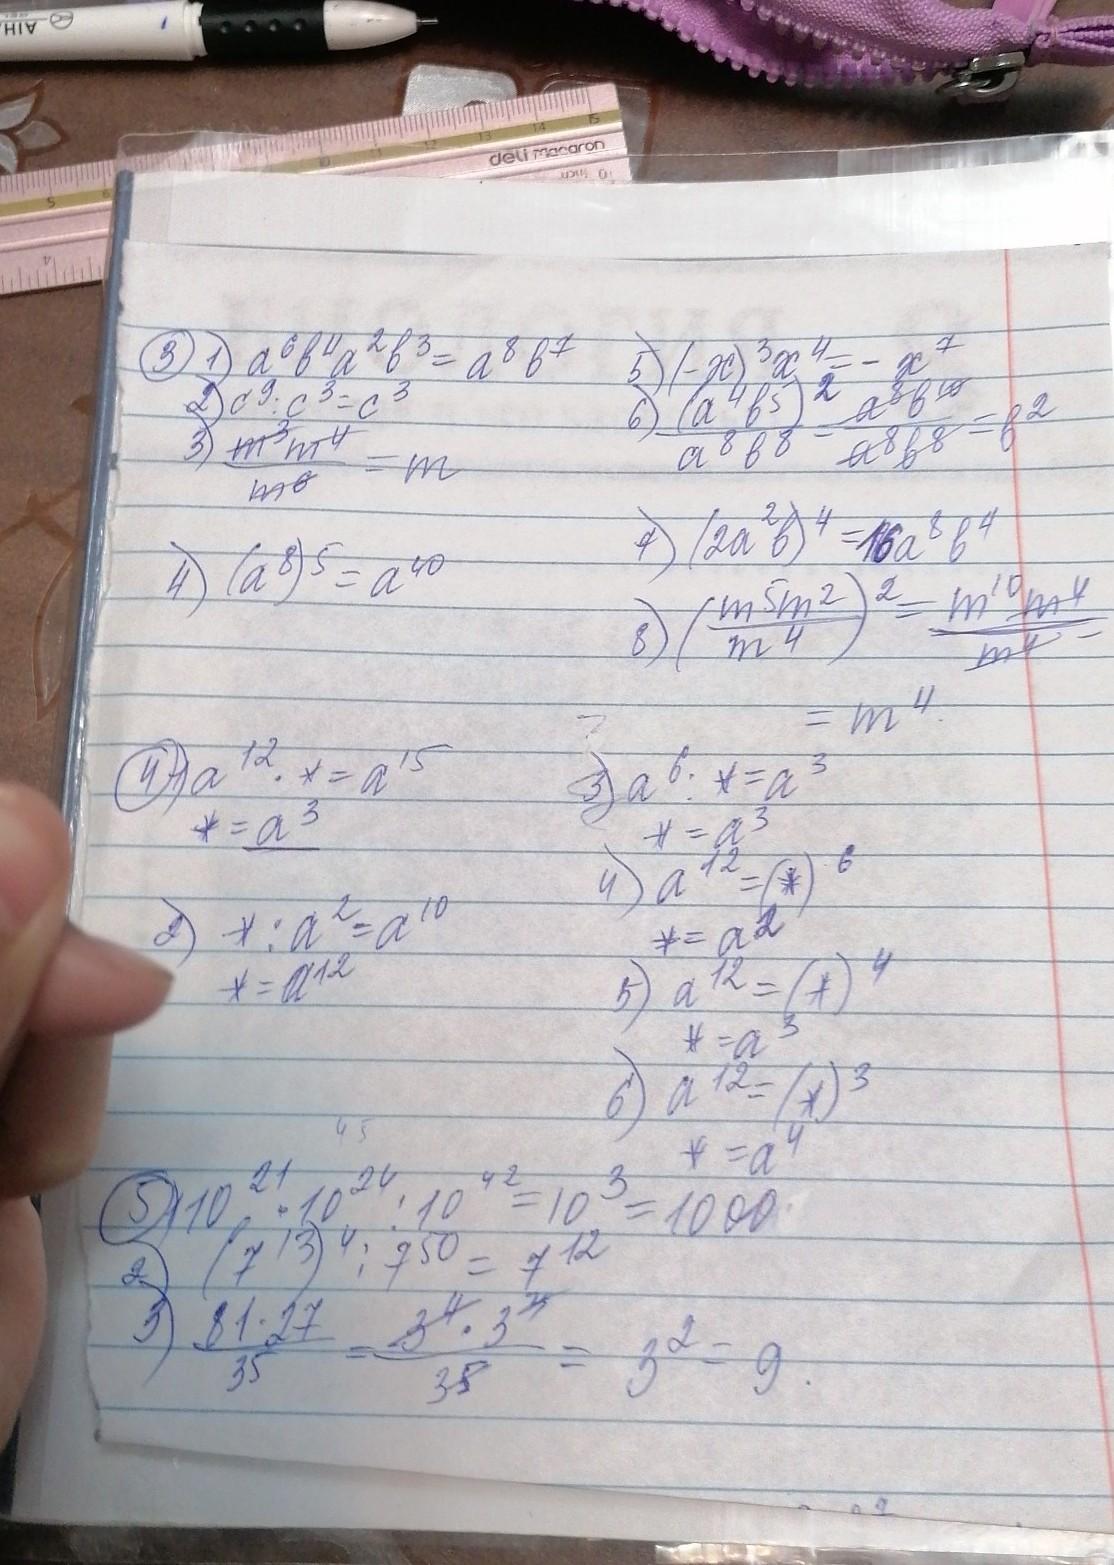 AIHA
deli Macaron
③ 1) a⁶b⁴a²b³ = a⁸b⁷
2) c⁹ : c³ = c³
3) m³m⁴ / m⁶ = m
4) (a⁸)⁵ = a⁴⁰
5) (-x)³x⁴ = -x⁷
6) (a⁴b⁵)² / a⁸b⁸ = a⁸b¹⁰ / a⁸b⁸ = b²
7) (2a²b)⁴ = 16a⁸b⁴
8) (m⁵m² / m⁴)² = m¹⁰m⁴ / m⁴ =
= m⁴.
④ 1) a¹² · * = a¹⁵
* = a³
2) * : a² = a¹⁰
* = a¹²
3) a⁶ : * = a³
* = a³
4) a¹² = (*)⁶
* = a²
5) a¹² = (*)⁴
* = a³
6) a¹² = (*)³
* = a⁴
45
⑤ 1) 10²¹ · 10²⁴ : 10⁴² = 10³ = 1000.
2) (7¹³)⁴ : 7⁵⁰ = 7¹²
3) 81 · 27 / 3⁵ = 3⁴ · 3³ / 3⁵ = 3² = 9.